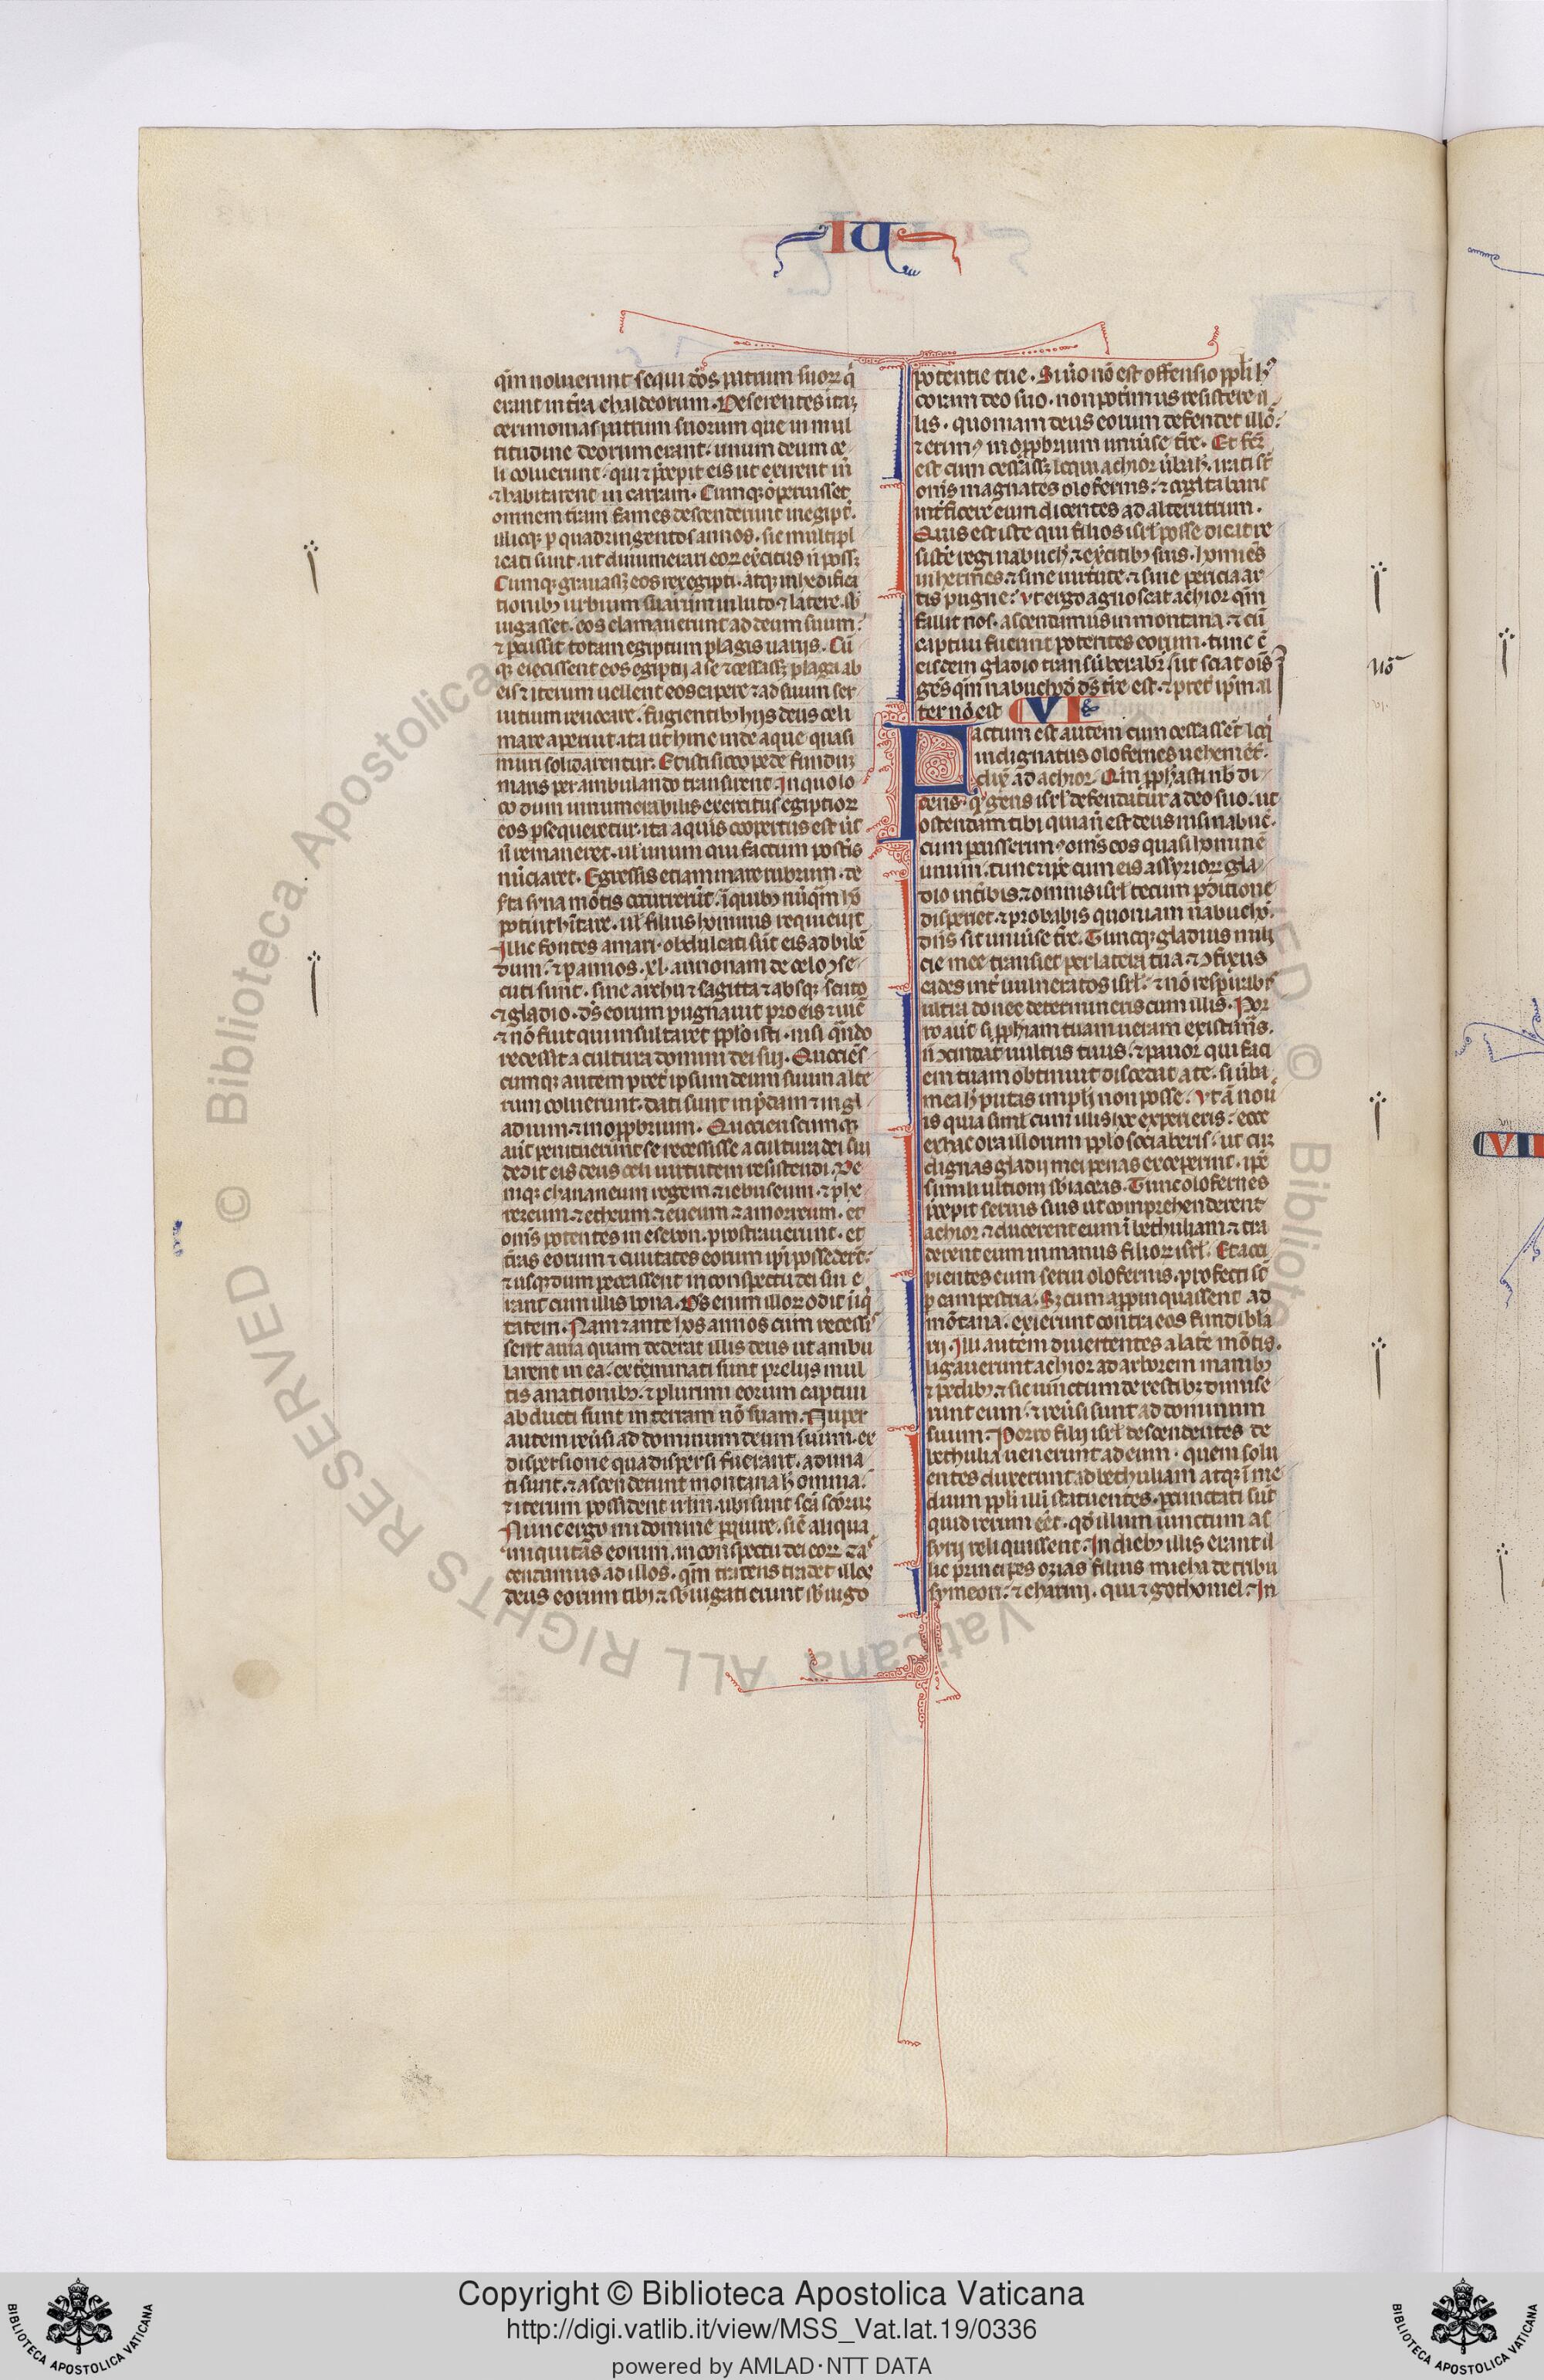 IU
qm̄ noluerunt sequi dōs patrum suoꝝ q̇
erant in t̄ra chaldeorum. Deserentes itaqꝫ
cerimonias patrum suorum que in mul
titudine deorum erant. unum deum ce
li coluerunt. qui ⁊ p̄cepit eis ut exirent in̄
⁊ habitarent in carram. Cumqꝫ oꝑuisset
omnem t̄ram fames descenderunt in egipt̄.
illicqꝫ ꝑ quadringentos annos. sic multipl
icati sunt. ut dinumerari eoꝝ ex̄citus n̄ possꝫ
Cumqꝫ grauassꝫ eos rex egipti. atqꝫ in hedifica
tionibꝫ urbium suarum in luto ⁊ latere. sb̄
iugasset. eos clamauerunt ad deum suum.
⁊ ꝑcussit totam egiptum plagis uarijs. Cū
qꝫ eiecissent eos egiptij a se ⁊ cessassꝫ plaga ab
eis ⁊ iterum uellent eos capere ⁊ ad suum ser
uitium reuocare. fugientibꝫ hijs deus celi
mare aperuit. ita ut hinc inde aque quasi
muri solidarentur. Et isti sicco pede fundum
maris perambulando transirent. In quo lo
co dum innumerabilis exercitus egiptioꝝ
eos ꝑsequeretur. ita aquis coopertus est ut
n̄ remaneret. ul̄ unum qui factum post̄is
nūciaret. Egressis etiam mare rubrum. de
s̄ta syna mōtis occurrerūt. ī quibꝫ nūq̄m hō
potuit h̄itare. ul̄ filius hominis requieuit
Illuc fontes amari. obdulcati sūt eis ad bibē
dum. ⁊ ꝑ annos .xl. annonam de celo ꝯse
cuti sunt. sine archu ⁊ sagitta ⁊ absqꝫ scuto
⁊ gladio. ds̄ eorum pugnauit pro eis ⁊ uic̄
⁊ nō fuit qui insultaret pplo isti. nisi q̄ndo
recessit a cultura domini dei sui. Quociēs
cumqꝫ autem p̄ret̄ ipsum deum suum alte
rum coluerunt. dati sunt in p̄dam ⁊ in gl
adium ⁊ in opprobrium. Quocienscumqꝫ
aut̄ penituerunt se recessisse a cultura dei sui
dedit eis deus celi uirtutem resistendi. De
niqꝫ chananeum regem. ⁊ iebuseum. ⁊ phe
rezeum. ⁊ etheum. ⁊ eueum ⁊ amorreum. et
om̄s potentes in esebon. prostrauerunt. et
t̄ras eorum ⁊ ciuitates eorum ip̄i possederūt.
⁊ usqꝫ dum peccassent in conspectu dei sui e
rant cum illis bona. Ds̄ enim illoꝝ odit iniq̇
tatem. Nam ⁊ ante hos annos cum recessi
sent a uia quam dederat illis deus ut ambu
larent in ea. exterminati sunt prelijs mul
tis a nationibꝫ. ⁊ plurimi eorum captiui
abducti sunt in terram nō suam. Nuper
autem reūsi ad dominum deum suum. ex
dispersione qua dispersi fuerant. aduna
ti sunt. ⁊ ascenderunt montana h̄ omnia.
⁊ iterum possident irl̄m. ubi sunt sc̄a sc̄orum
Nunc ergo mi domine ꝑquire. si ē aliqua
iniquitas eorum. in conspectu dei eoꝝ ⁊ as
cendamus ad illos. qm̄ tradens tradet illos
deus eorum tibi. ⁊ sb̄iugati erunt sb̄ iugo
potentie tue. Si u̇o nō est offensio ppli hꝰ
coram deo suo. non potim̄us resistere il
lis. quoniam deus eorum defendet illos.
⁊ erimꝰ in opprobrium uniuer̄se t̄re. Et fc̄m
est cum cessassꝫ loqui achior u̇ba h̄. irati st̄
om̄s magnates olofernis. ⁊ cogitabant
int̄ficere eum dicentes ad alterutrum.
Quis est iste qui filios isrl̄ posse dicit re
sist̄e regi nabuch. ⁊ ex̄citibꝫ suis. homines
inhermes. ⁊ sine uirtute. ⁊ sine pericia ar
tis pugne. Vt ergo agnoscat achior qm̄
fallit nos. ascendamus in montana. ⁊ cū
captiui fuerint potentes eorum. tunc c̄
eisdem gladio transuberabit̄. ut sciat om̄s
gens qm̄ nabuchꝺō ds̄ t̄re est. ⁊ p̄ret̄ ip̄m al
ter nō est VI
Factum est autem cum cessassent loq̇
indignatus olofernes uehement̄.
dix̄ ad achior. Qm̄ pphasti nb̄ di
cens. q̇ gens isrl̄ defendatur a deo suo. ut
ostendam tibi quia n̄ est deus nisi nabuc̄.
cum ꝑcusserimꝰ om̄s eos quasi hominē
unum. tunc ⁊ ip̄e cum eis assyrioꝝ gla
dio int̄ibis. ⁊ omnis isrl̄ tecum ꝑditione
disperiet. ⁊ probabis quoniam nabuchō.
dn̄s sit uniuer̄se t̄re. Tuncqꝫ gladius mili
cie mee transiet per latera tua. ⁊ ꝯfixus
cades int̄ uulneratos isrl̄. ⁊ nō respirabis
ultra donec determineris cum illis. Por
ro aut̄ si pphiam tuam ueram existim̄s.
n̄ ꝯcidat uultus tuus. ⁊ pauor qui faci
em tuam obtinuit discedat a te. si u̇ba
mea h̄ putas impl̄i non posse. Vt ā nou
is quia simul cum illis hec experieris. ecce
ex hac ora illorum pplo sociaberis. ut cum
dignas gladij mei penas exceperint. ip̄e
simili ultioni sb̄iaceas. Tunc olofernes
p̄cepit seruis suis ut comprehenderent
achior. ⁊ ducerent eum ī bethuliam. ⁊ tra
derent eum in manus filioꝝ isrl̄. Et acci
pientes eum serui olofernis. profecti st̄
ꝑ campestria. Sꝫ cum appinquassent ad
mōtana. exierunt contra eos fundibla
rij. Illi autem diuertentes a late mōtis.
ligauerunt achior ad arborem manibꝫ
⁊ pedibꝫ. ⁊ sic uinctum de restibꝫ dimise
runt eum. ⁊ reūsi sunt ad dominum
suum. Porro filij isrl̄ descendentes de
bethulia uenerunt ad eum. quem solu
entes duxerunt ad bethuliam atqꝫ ī me
dium ppli illū statuentes. ꝑcunctati sūt
quid rerum eēt. qd̄ illum uinctum as
syrij reliquissent. In diebꝫ illis erant il
lic principes ozias filius micha de tribu
symeon. ⁊ charmi. qui ⁊ gothoniel. ⁊ In
No
VII
Copyright © Biblioteca Apostolica Vaticana
http://digi.vatlib.it/view/MSS_Vat.lat.19/0336
powered by AMLAD·NTT DATA
BIBLIOTECA APOSTOLICA VATICANA
BIBLIOTECA APOSTOLICA VATICANA